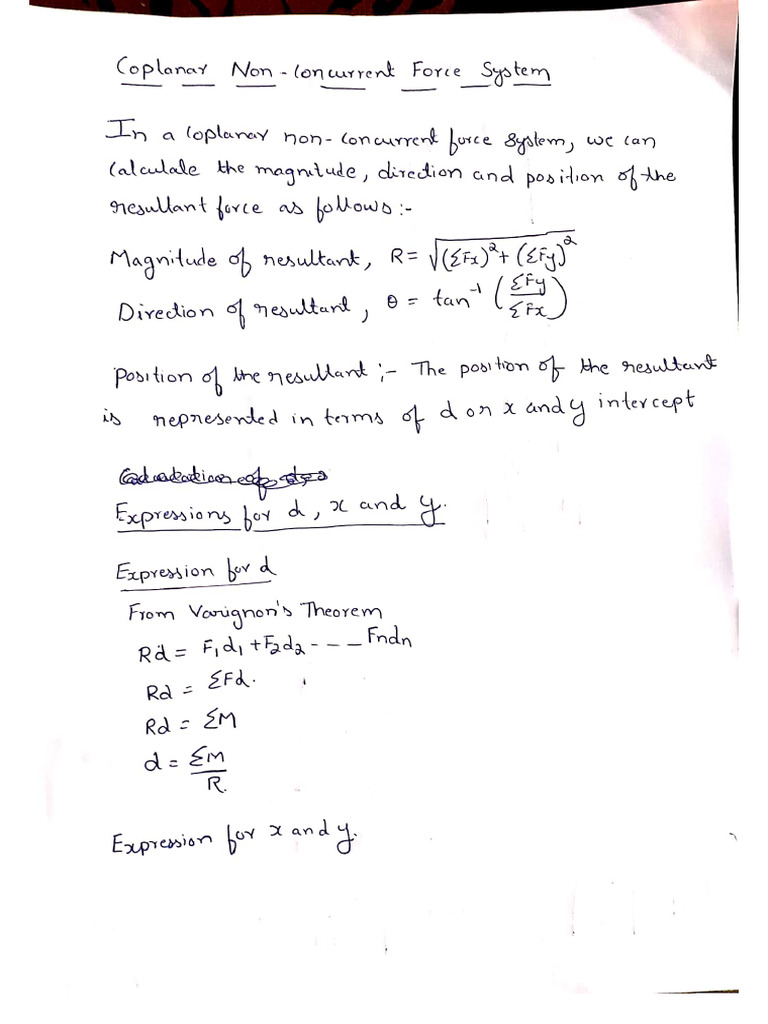 Coplanar Non-Concurrent Force System
In a Coplanar non-concurrent force system, we can
Calculate the magnitude, direction and position of the
resultant force as follows:-
Magnitude of resultant, R = √(ΣFx)² + (ΣFy)²
Direction of resultant, θ = tan⁻¹ (ΣFy/ΣFx)
Position of the resultant :- The position of the resultant
is represented in terms of d or x and y intercept
Expressions for d, x and y.
Expression for d
From Varignon's Theorem
Rd = F₁d₁ + F₂d₂ - - - - Fndn
Rd = ΣFd.
Rd = ΣM
d = ΣM/R.
Expression for x and y.